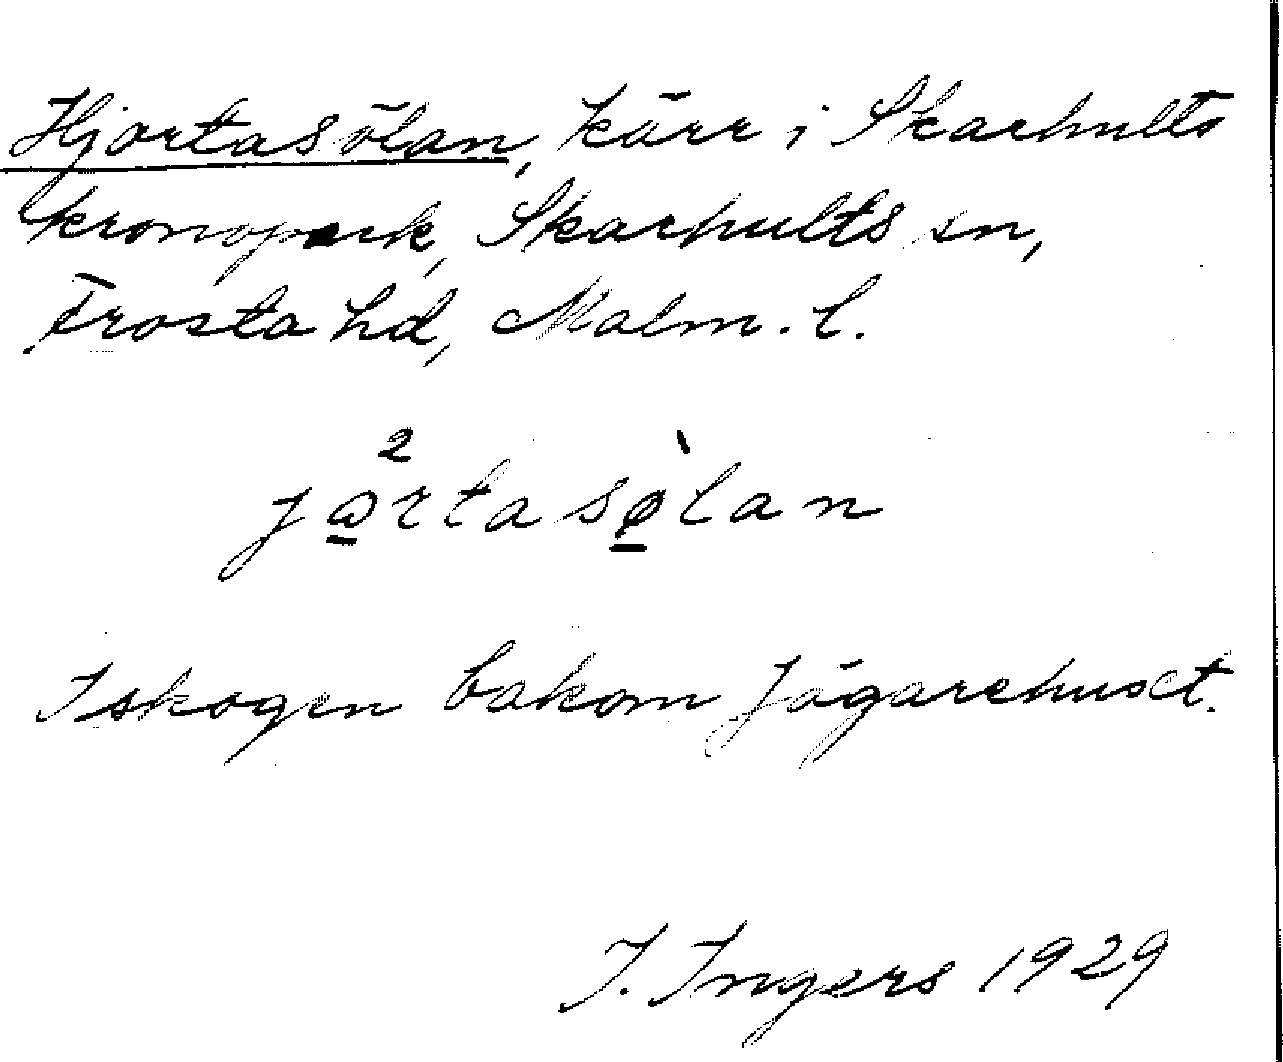 Hjortasölan, kärr i Skarhults
kronopark, Skarhults sn,
Frosta hd, Malm. l.
2 `
jɷ̱rtasø̱lan
I skogen bakom Jägarehuset.
I. Ingers 1929